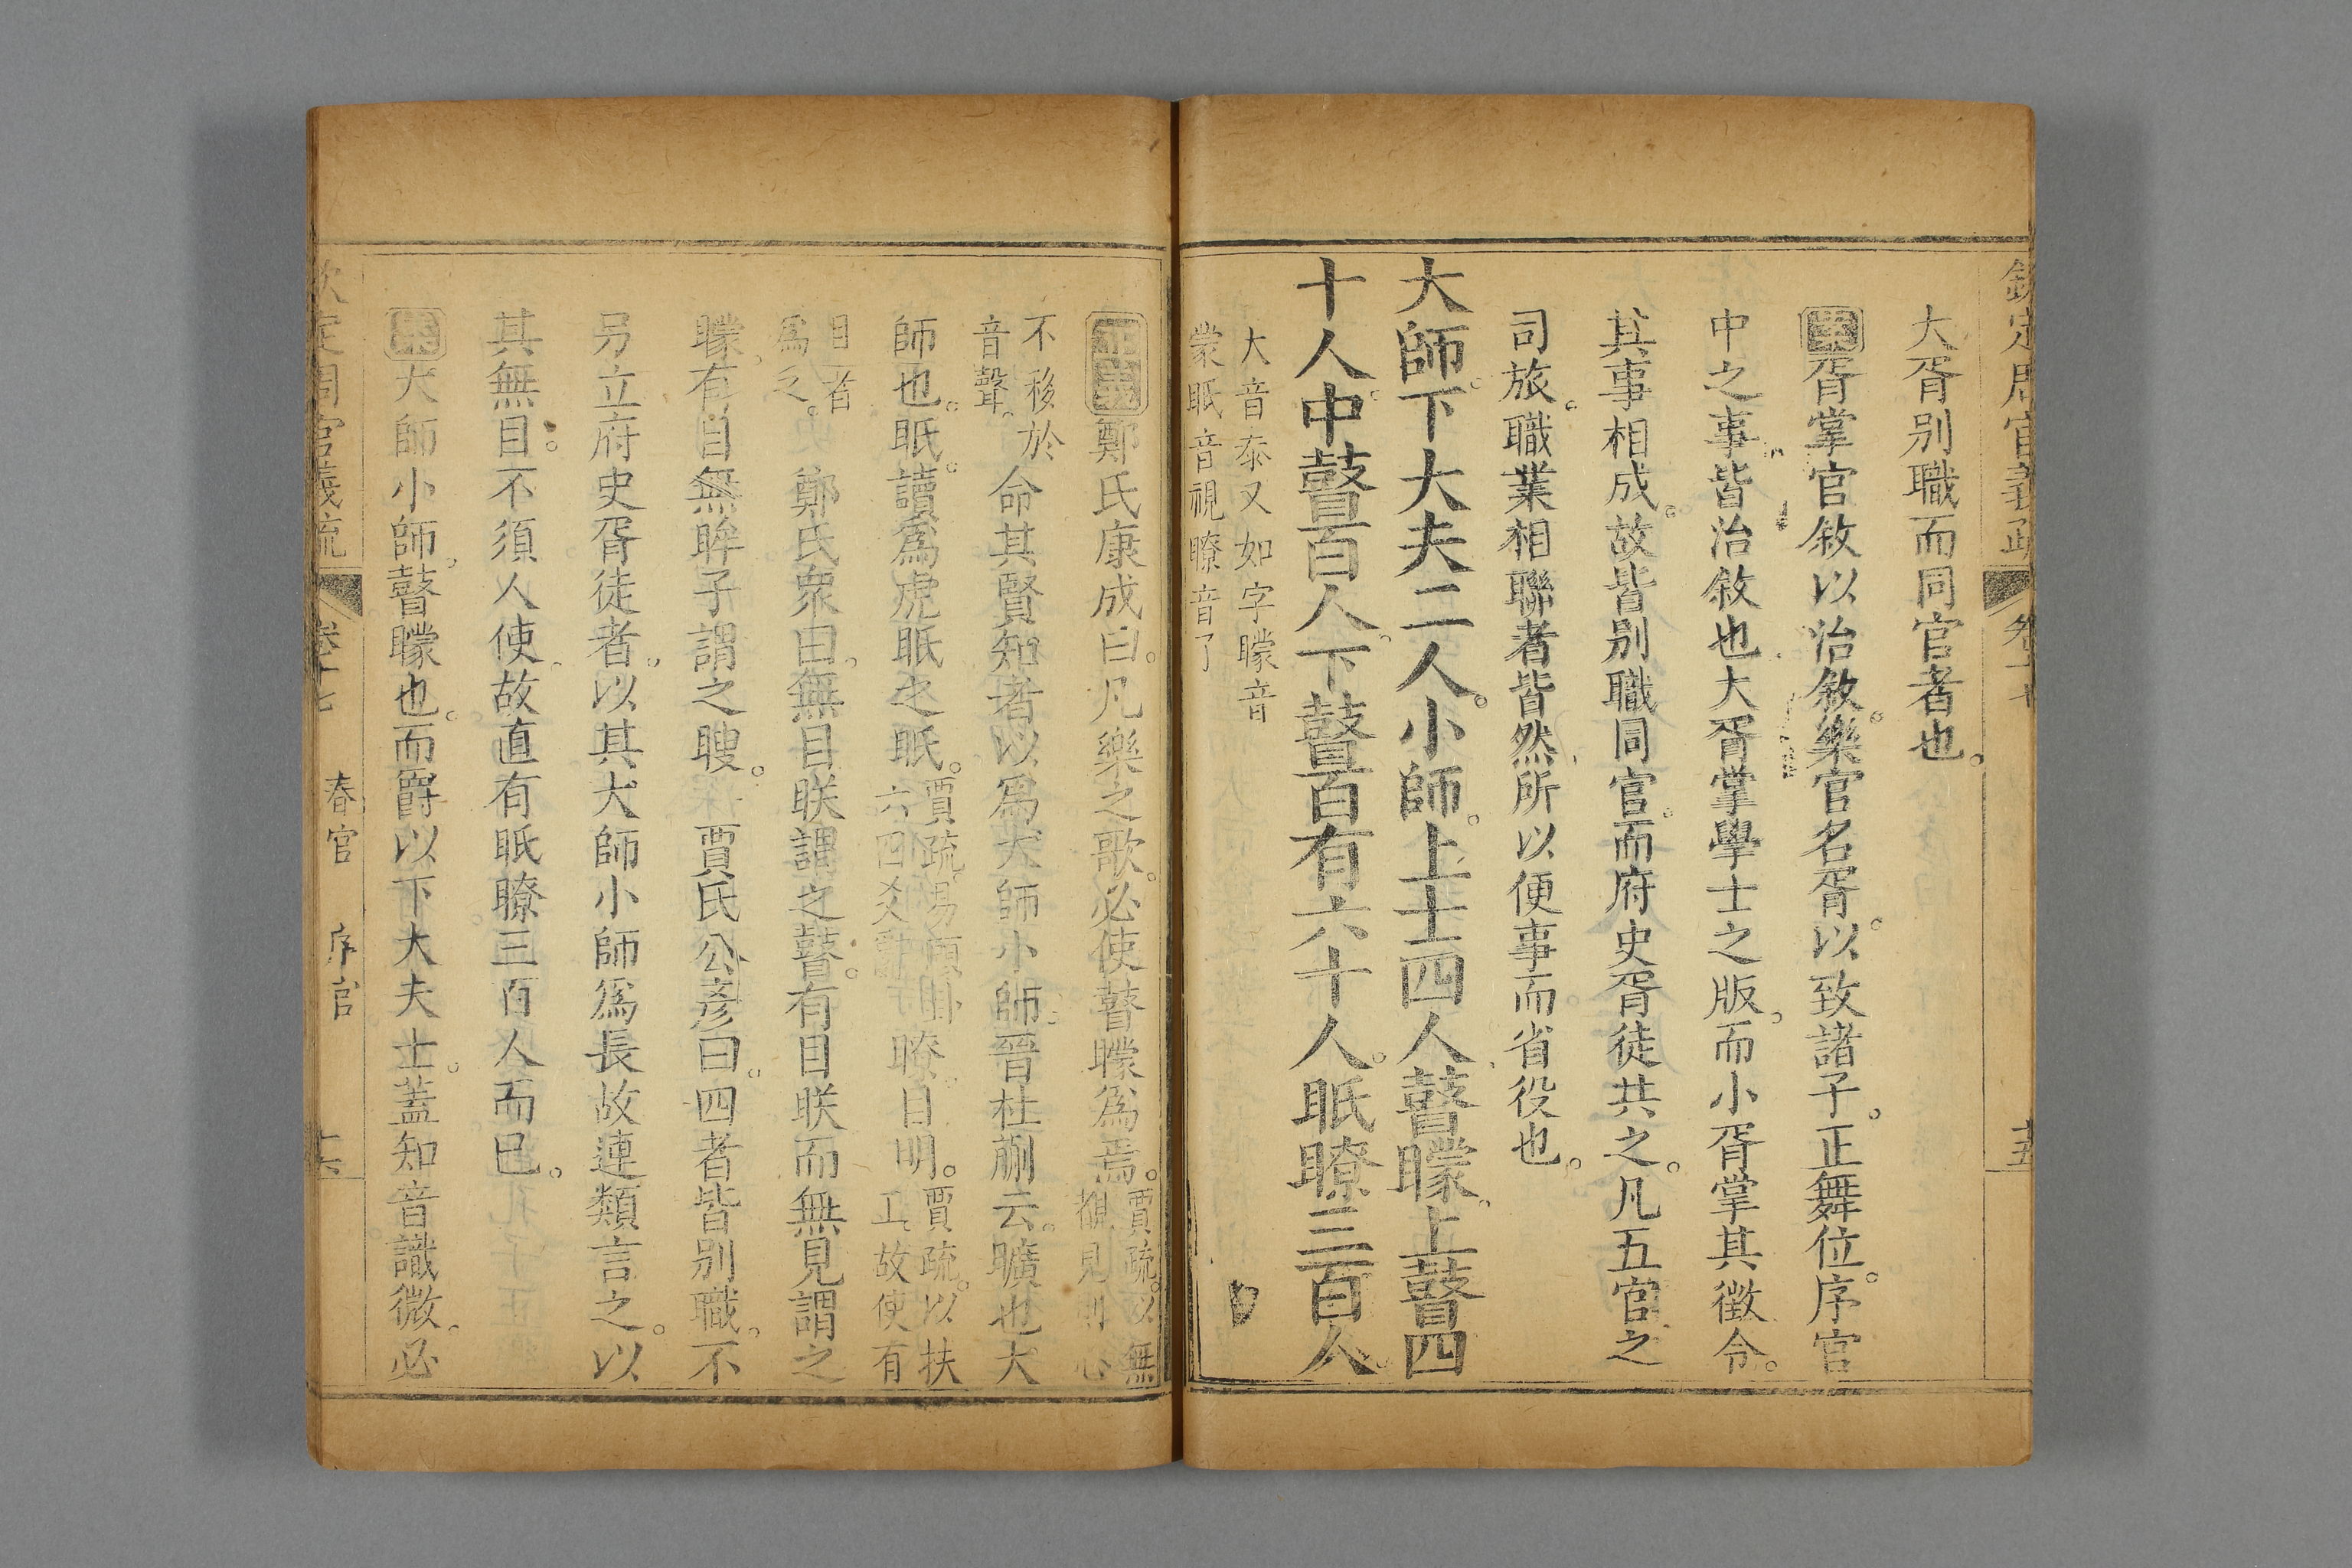 欽定周官義疏 卷十七 十五
大胥別職而同官者也。
案胥掌官敘以治敘。樂官名胥。以致諸子。正舞位。序官
中之事。皆治敘也大胥掌學士之版。而小胥掌其徵令。
其事相成。故皆別職同官。而府史胥徒共之。凡五官之
司旅。職業相聯者皆然、所以便事而省役也。
大師。下大夫二人。小師。上士四人瞽矇。上瞽四
十人。中瞽百人。下瞽百有六十人。眡瞭三百人。
大音泰又如字矇音
蒙眡音視瞭音了
正義鄭氏康成曰。凡樂之歌。必使瞽矇為焉。賈疏。以無
覩見則心
不移於
音聲。命其賢知者以為大師小師。晉杜蒯云。曠也大
師也。眡。讀為虎眡之眡。賈疏。易頤卦
六四爻辭 瞭。目明。賈疏。以扶
工。故使有
目者
為之。 鄭氏眾曰。無目眹謂之瞽。有目眹而無見謂之
矇。有目無眸子謂之瞍。 賈氏公彥曰。四者皆別職。不
另立府史胥徒者。以其大師小師為長故連類言之。以
其無目。不須人使。故直有眡瞭三百人而已。
案大師小師。瞽矇也。而爵以下大夫士。蓋知音識微。必
欽定周官義疏 卷十七 春官 序官 十六